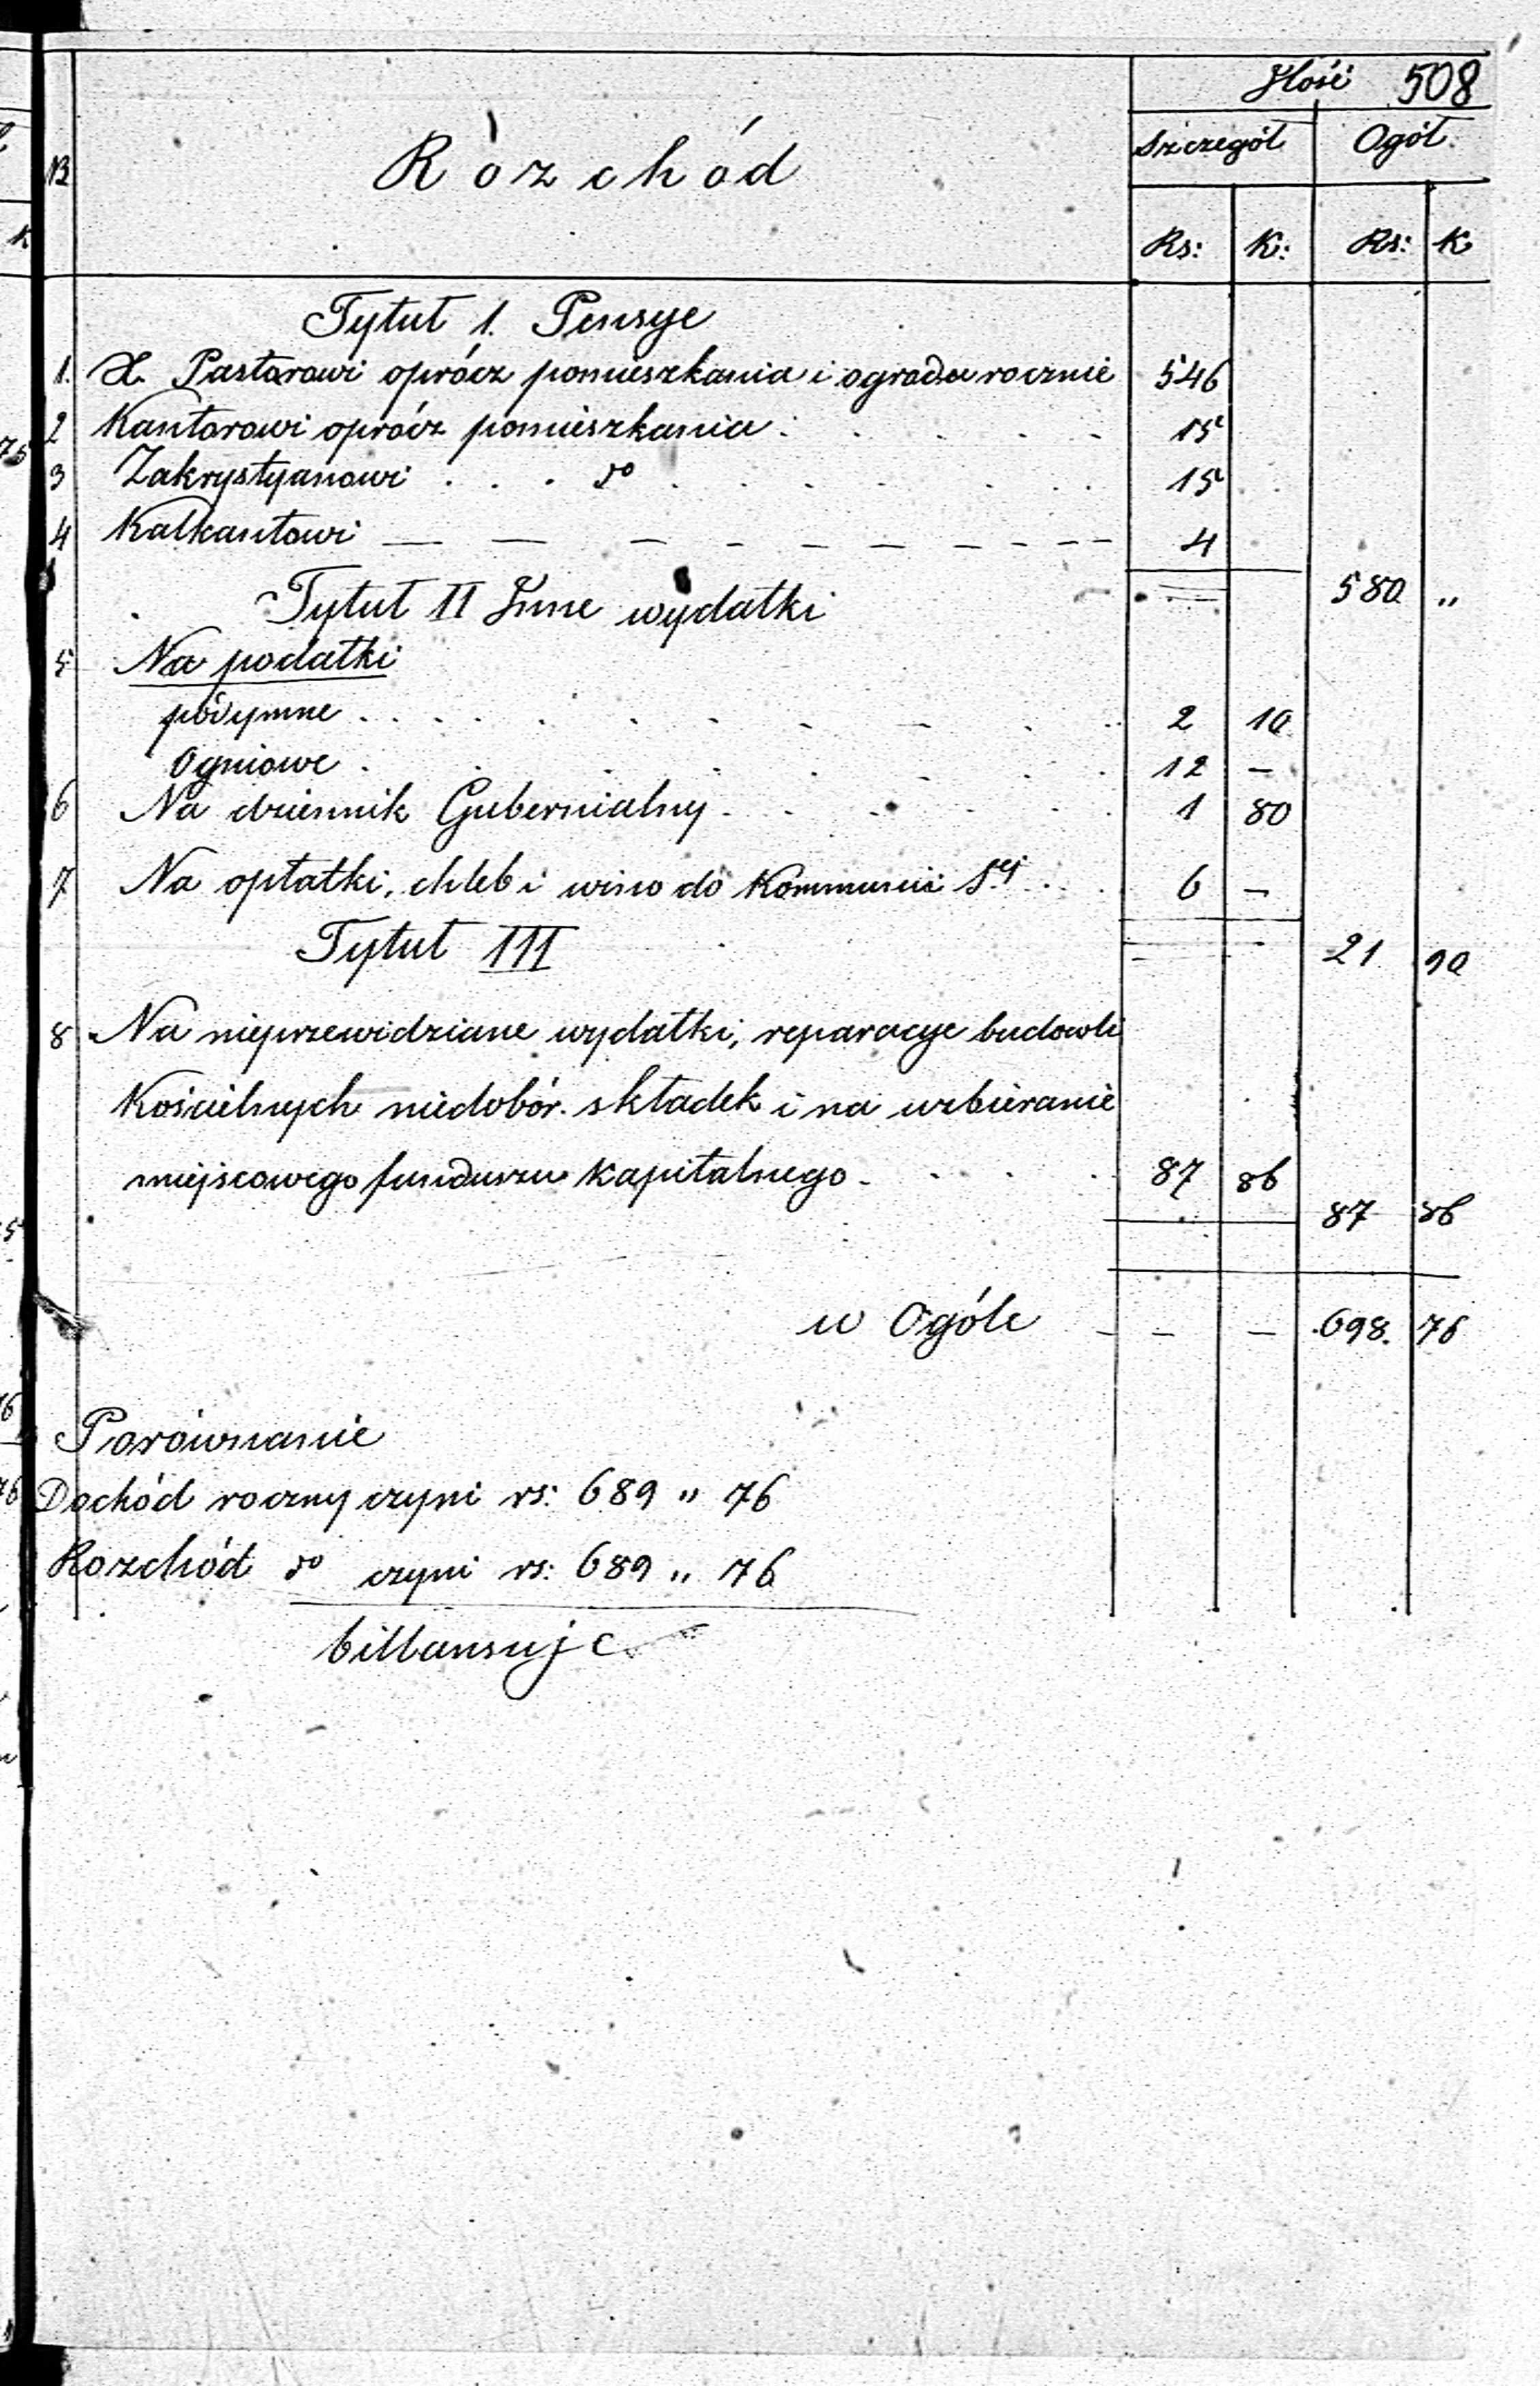 Ilość 508
№ Rozchód Szczegół Ogół
Rs: K: Rs: K
Tytuł 1. Pensye
1. X. Pastorowi oprócz pomieszkania i ogrodu rocznie 546
2 Kantorowi oprócz pomieszkania . . . . . 15
3 Zakrystyanowi . . . do . . . . . . 15
4 Kalkantowi — — — — — — — 4
580 "
Tytuł II Inne wydatki
5 Na podatki
podymne . . . . . . 2 10
Ogniowe . . . . . . 12 —
6 Na dziennik Gubernialny . . . . 1 80
7 Na opłatki, chleb i wino do Kommunii Sej . . . 6 —
21 90
Tytuł III
8 Na nieprzewidziane wydatki, reparacye budowli
Kościelnych niedobór składek i na uzbieranie
miejscowego funduszu Kapitalnego . . . . 87 86
87 86
w Ogóle — — — 698. 76
Porównanie
Dochód roczny czyni rs: 689 " 76
Rozchód do czyni rs: 689 " 76
billansuje